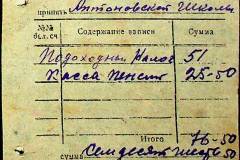 принять Антоновской Школы
№№ бух. сч. Содержание записи Сумма
Подоходный налог 51
Касса пенсии 25-50
Итого 76-50
сумма Семдесят шесть 50